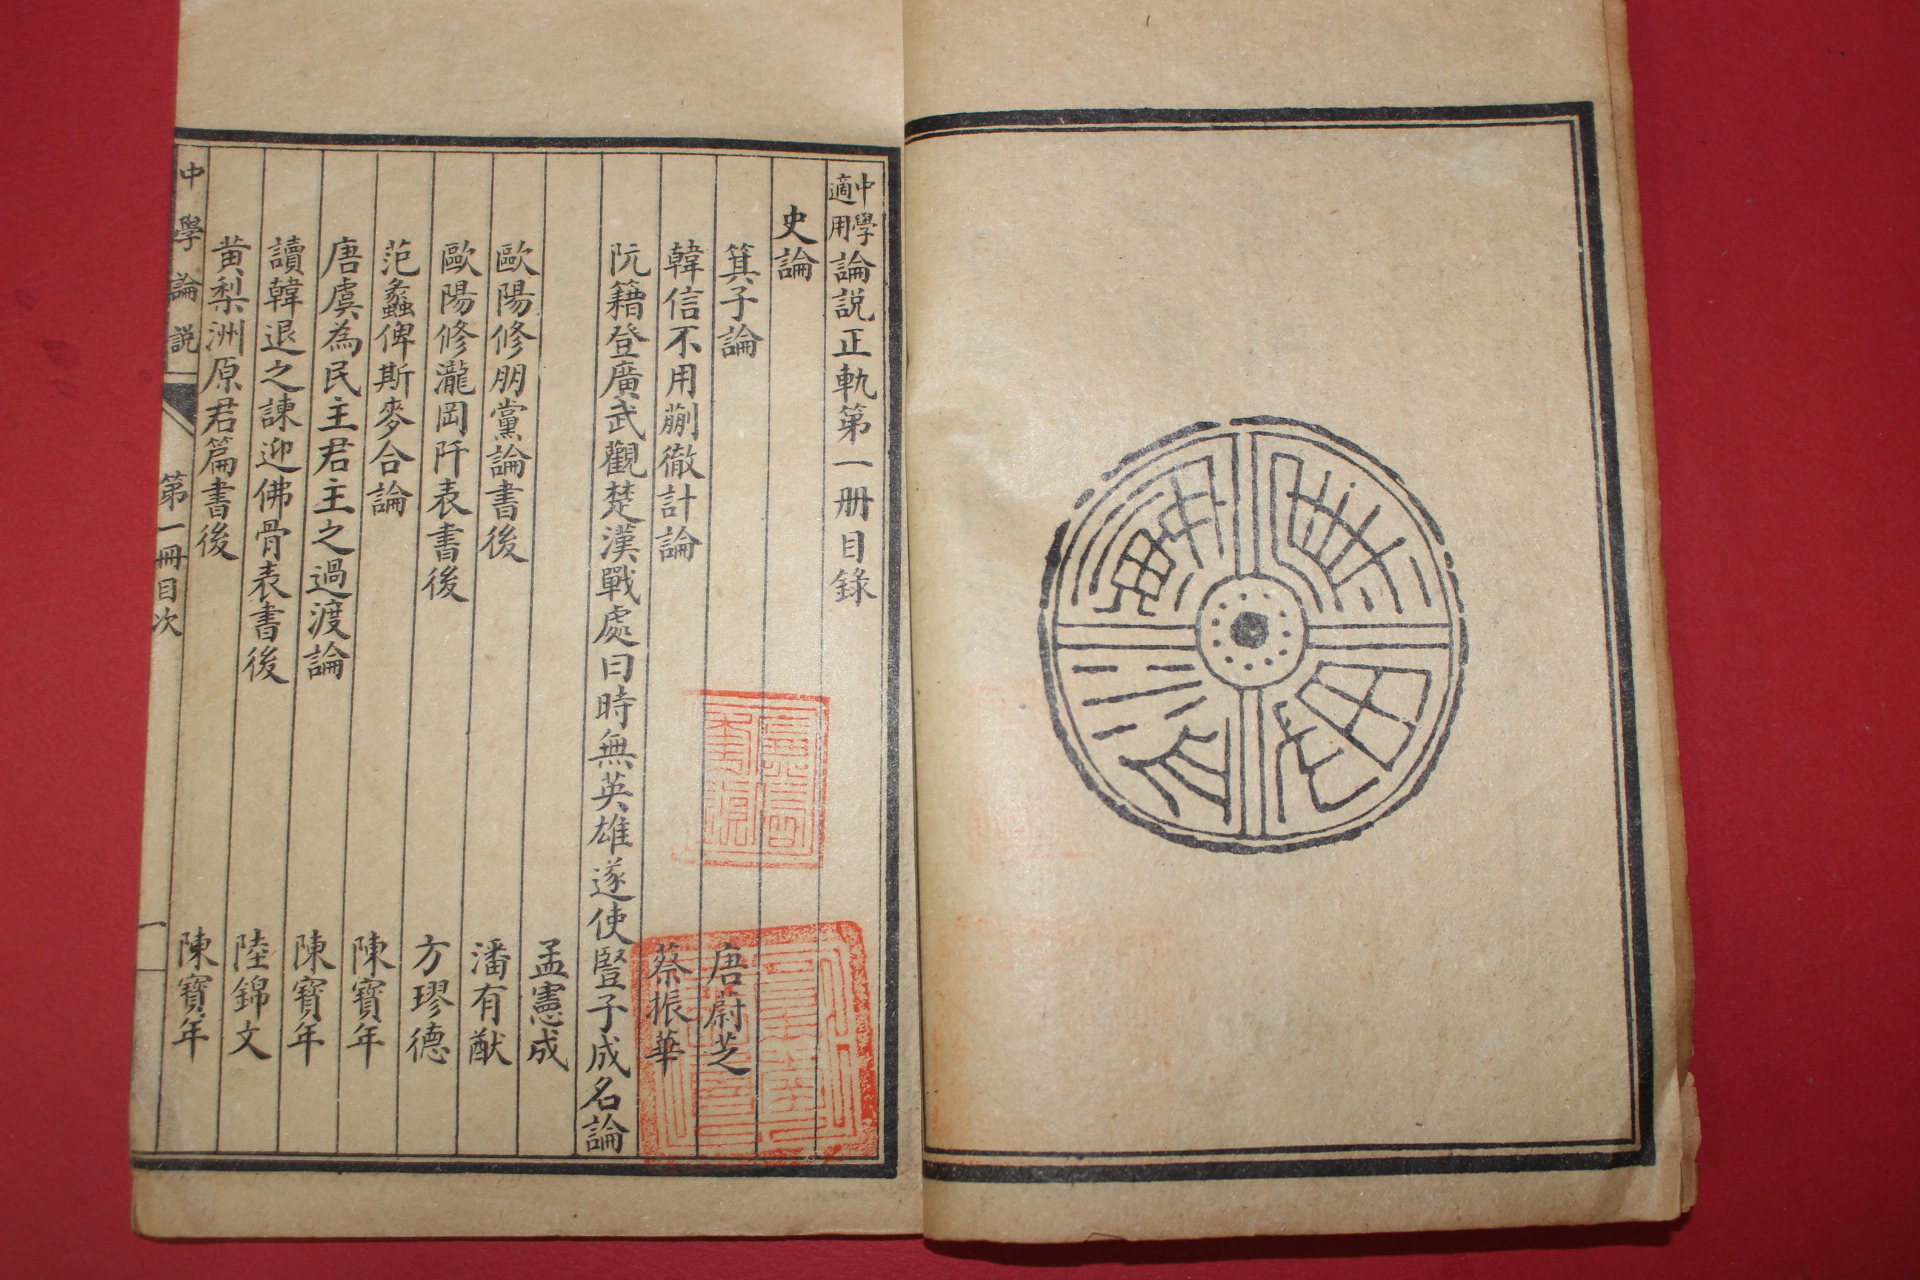 中學適用論説正軌第一册目錄
史論
箕子論 唐蔚芝
韓信不用蒯徹計論 蔡振華
阮籍登廣武觀楚漢戰處曰時無英雄遂使豎子成名論
孟憲成
歐陽修朋黨論書後 潘有猷
歐陽修瀧岡阡表書後 方璆德
范蠡俾斯麥合論 陳寶年
唐虞為民主君主之過渡論 陳寶年
讀韓退之諫迎佛骨表書後 陸錦文
黃梨洲原君篇書後 陳寶年
中學論説 第一冊目次 一